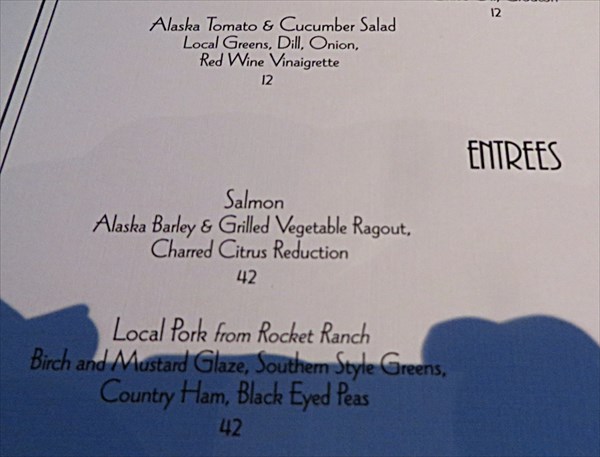 Alaska Tomato & Cucumber Salad
Local Greens, Dill, Onion,
Red Wine Vinaigrette
12
12
ENTREES
Salmon
Alaska Barley & Grilled Vegetable Ragout,
Charred Citrus Reduction
42
Local Pork from Rocket Ranch
Birch and Mustard Glaze, Southern Style Greens,
Country Ham, Black Eyed Peas
42